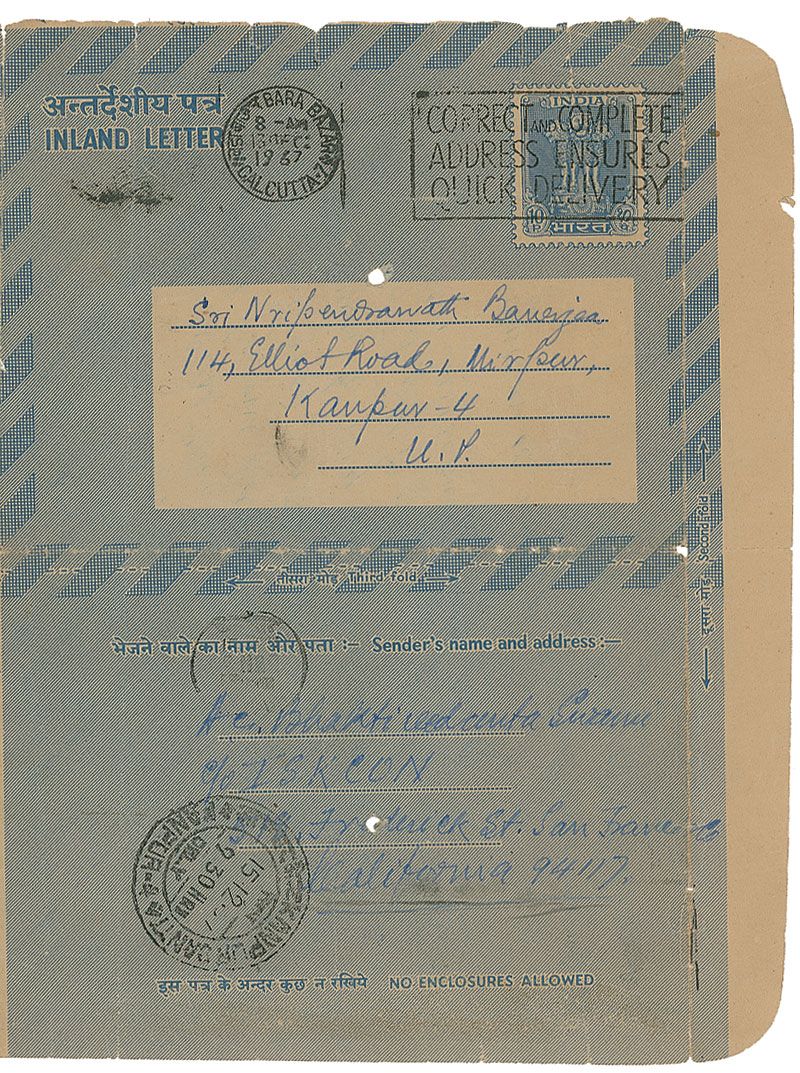 अन्तर्देशीय पत्र
INLAND LETTER
BARA BAZAR
8 - AM
13 DEC
1967
CALCUTTA-7
INDIA
CORRECT AND COMPLETE
ADDRESS ENSURES
QUICK DELIVERY
10 10
भारत
Sri Nripendranath Banerjee
114, Elliot Road, Mirpur,
Kanpur-4
U.P.
तीसरा मोड़ Third fold
दूसरा मोड़ Second fold
भेजने वाले का नाम और पता :- Sender's name and address:-
A.C. Bhaktivedanta Swami
c/o ISKCON
Frederick St. San Francisco
California 94117.
KANPUR CANTT
KANPUR-4
9 30 HRS
15.12.
इस पत्र के अन्दर कुछ न रखिये NO ENCLOSURES ALLOWED